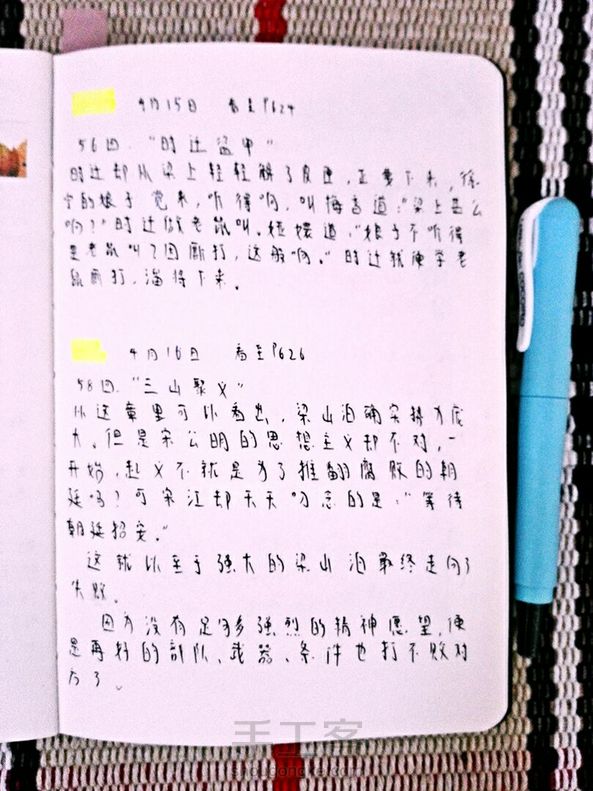 4月15日 看至P624
56回."时迁盗甲"
时迁却从梁上轻轻解了皮匣,正要下来,徐
宁的娘子觉来,听得响,叫梅香道:"梁上甚么
响?"时迁做老鼠叫.娅嬛道:"娘子不听得
是老鼠叫?因厮打,这般响."时迁就便学老
鼠厮打,溜将下来.
4月16日 看至P626
58回."三山聚义"
从这章里可以看出,梁山泊确实精力庞
大、但是宋公明的思想主义却不对,一
开始,起义不就是为了推翻腐败的朝
廷吗?可宋江却天天勿忘的是:"等待
朝廷招安."
这就以至于强大的梁山泊最终走向了
失败.
因为没有足够多强烈的精神愿望,便
是再好的部队、武器、条件也打不败对
方了.
手工客
shougongke.com